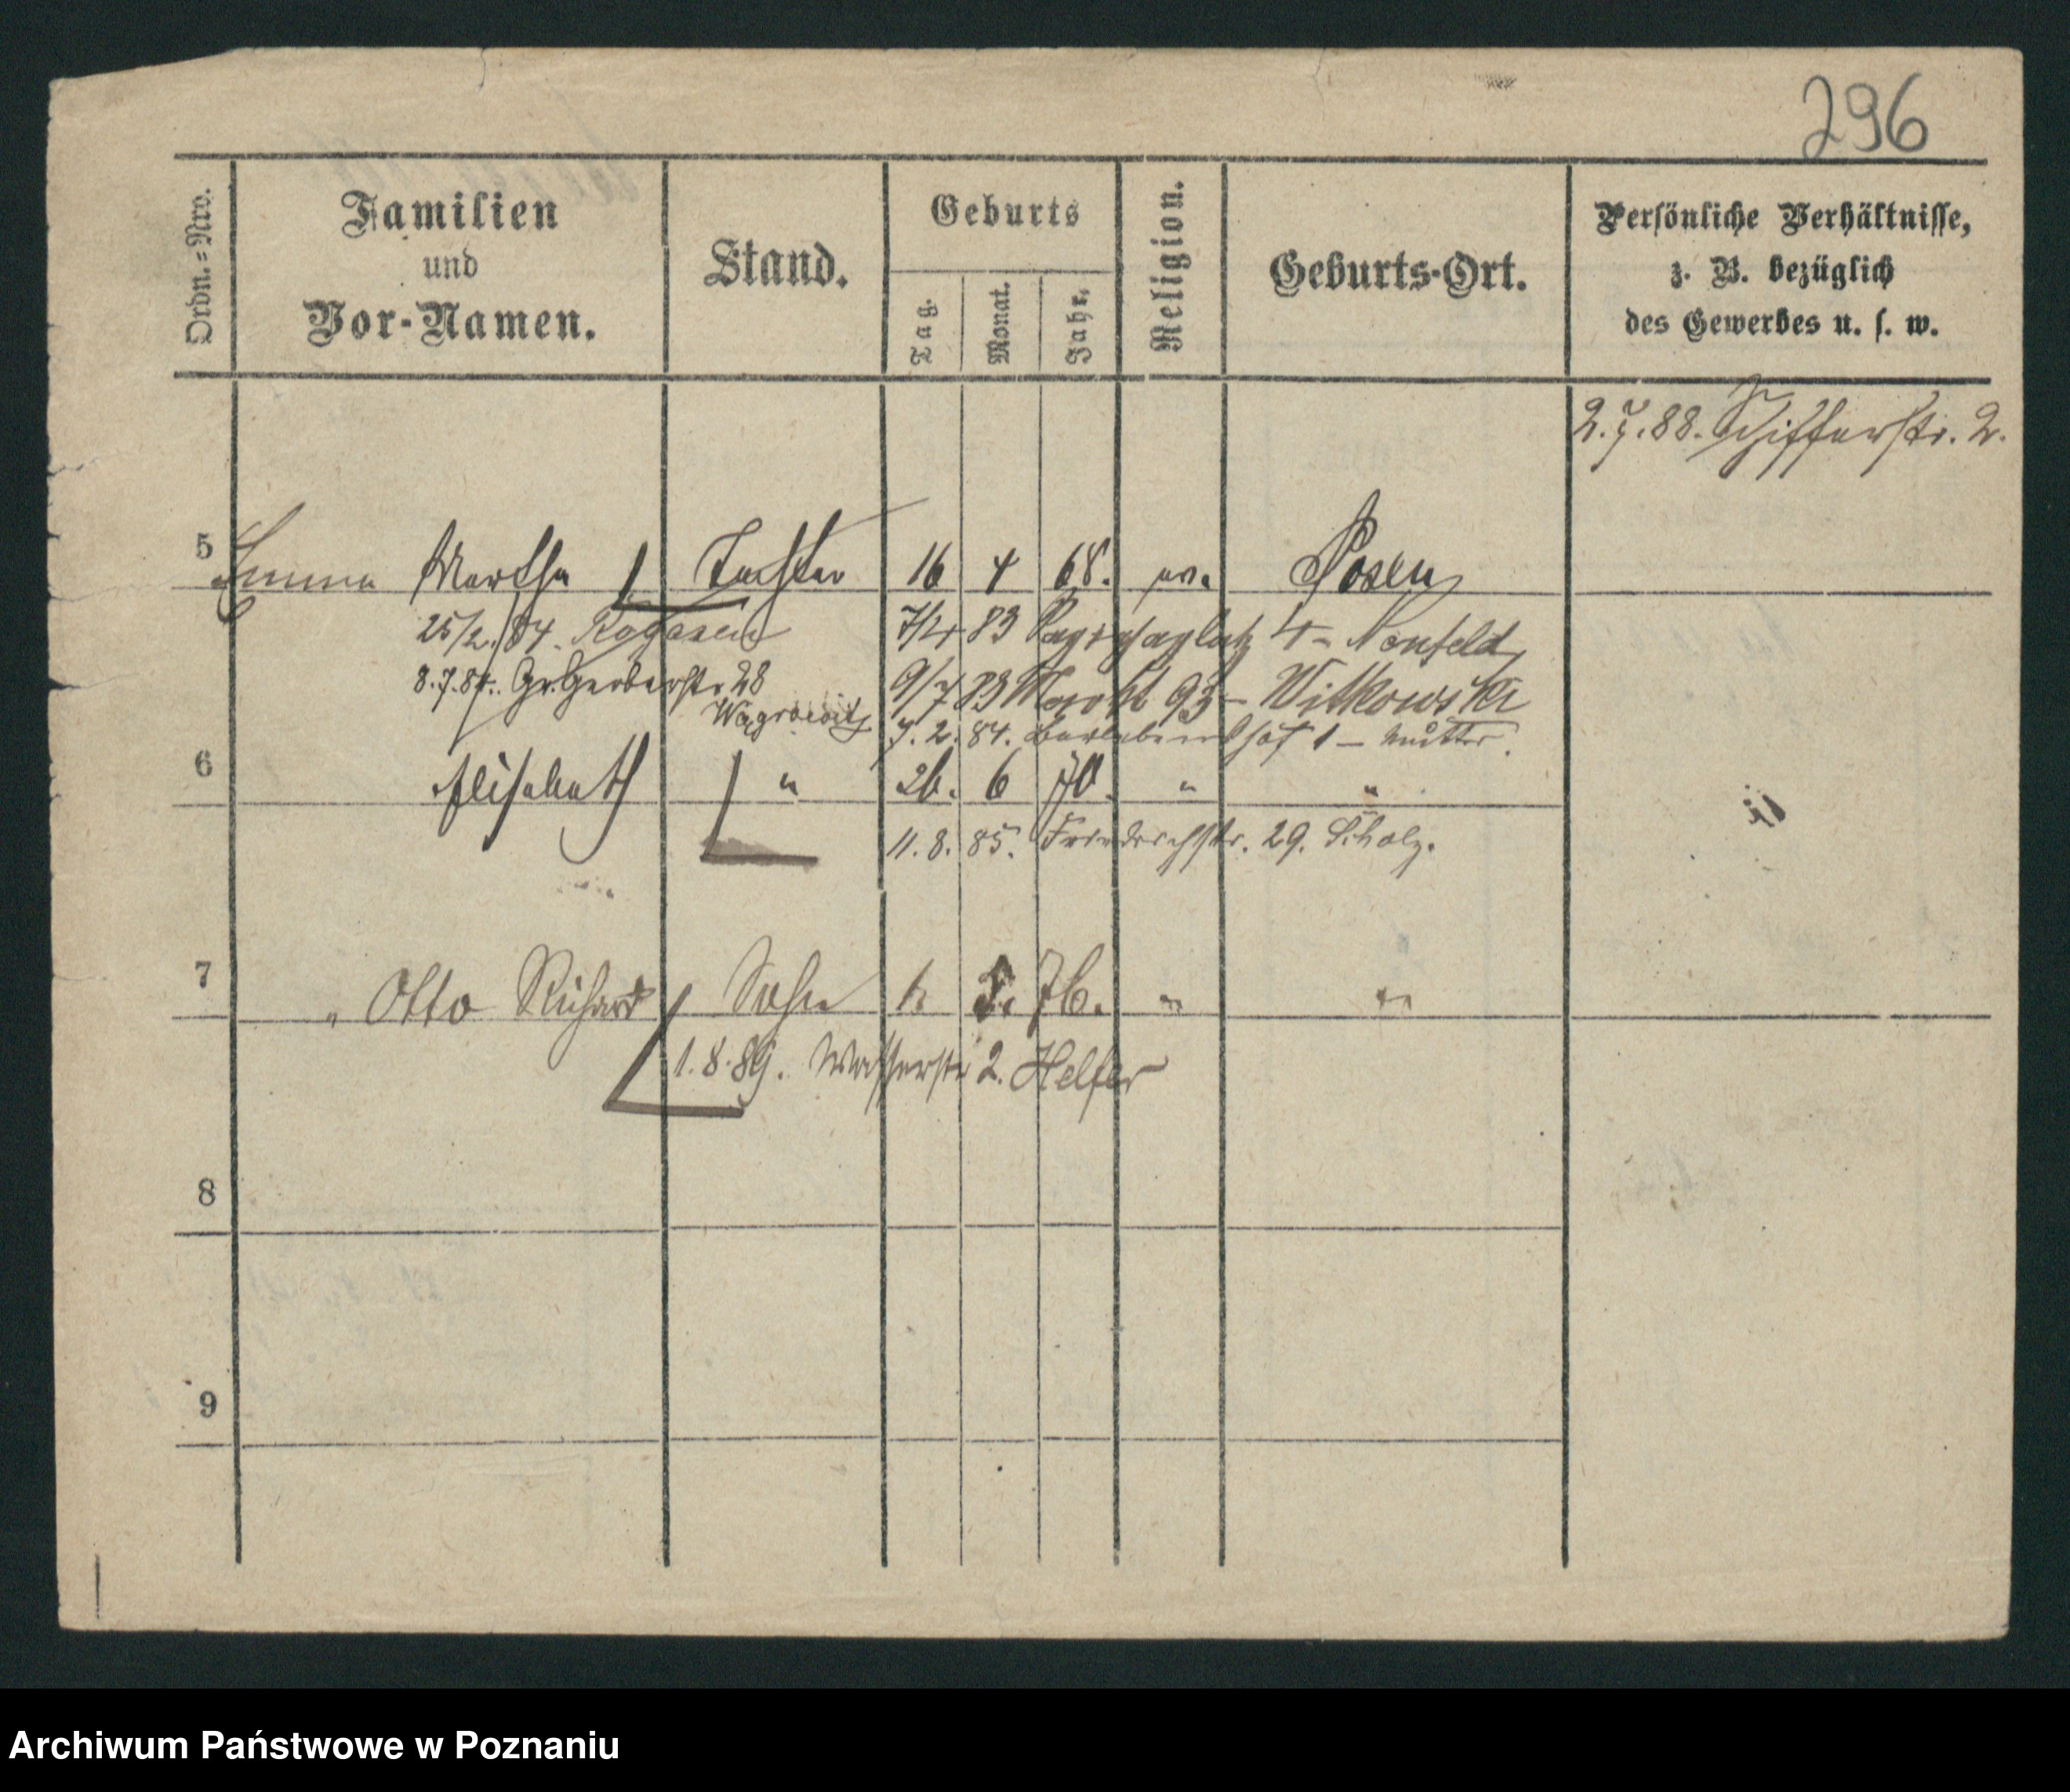 296
Ordn.=Nro.
Familien
und
Vor-Namen.
Stand.
Geburts
Tag.
Monat.
Jahr.
Religion.
Geburts-Ort.
Persönliche Verhältnisse,
z. B. bezüglich
des Gewerbes u. s. w.
2.7.88. Schifferstr. 2.
5 Emma Martha Tochter 16 4 68. Posen
25/2. 84. Rogasen
7/4 83 4 - Neufeld
8.7.84. Gr. Gerberstr. 28
9/7 83 Markt 93 - Witkowski
Wągrowitz
7. 2. 84. 1 - Mutter.
6 Elisabeth " 26. 6 70. " "
11. 8. 85. Friedrichstr. 29. Scholz.
7 " Otto Richard Sohn 76. " "
1.8.89. Wasserstr 2. Helfer
8
9
Archiwum Państwowe w Poznaniu